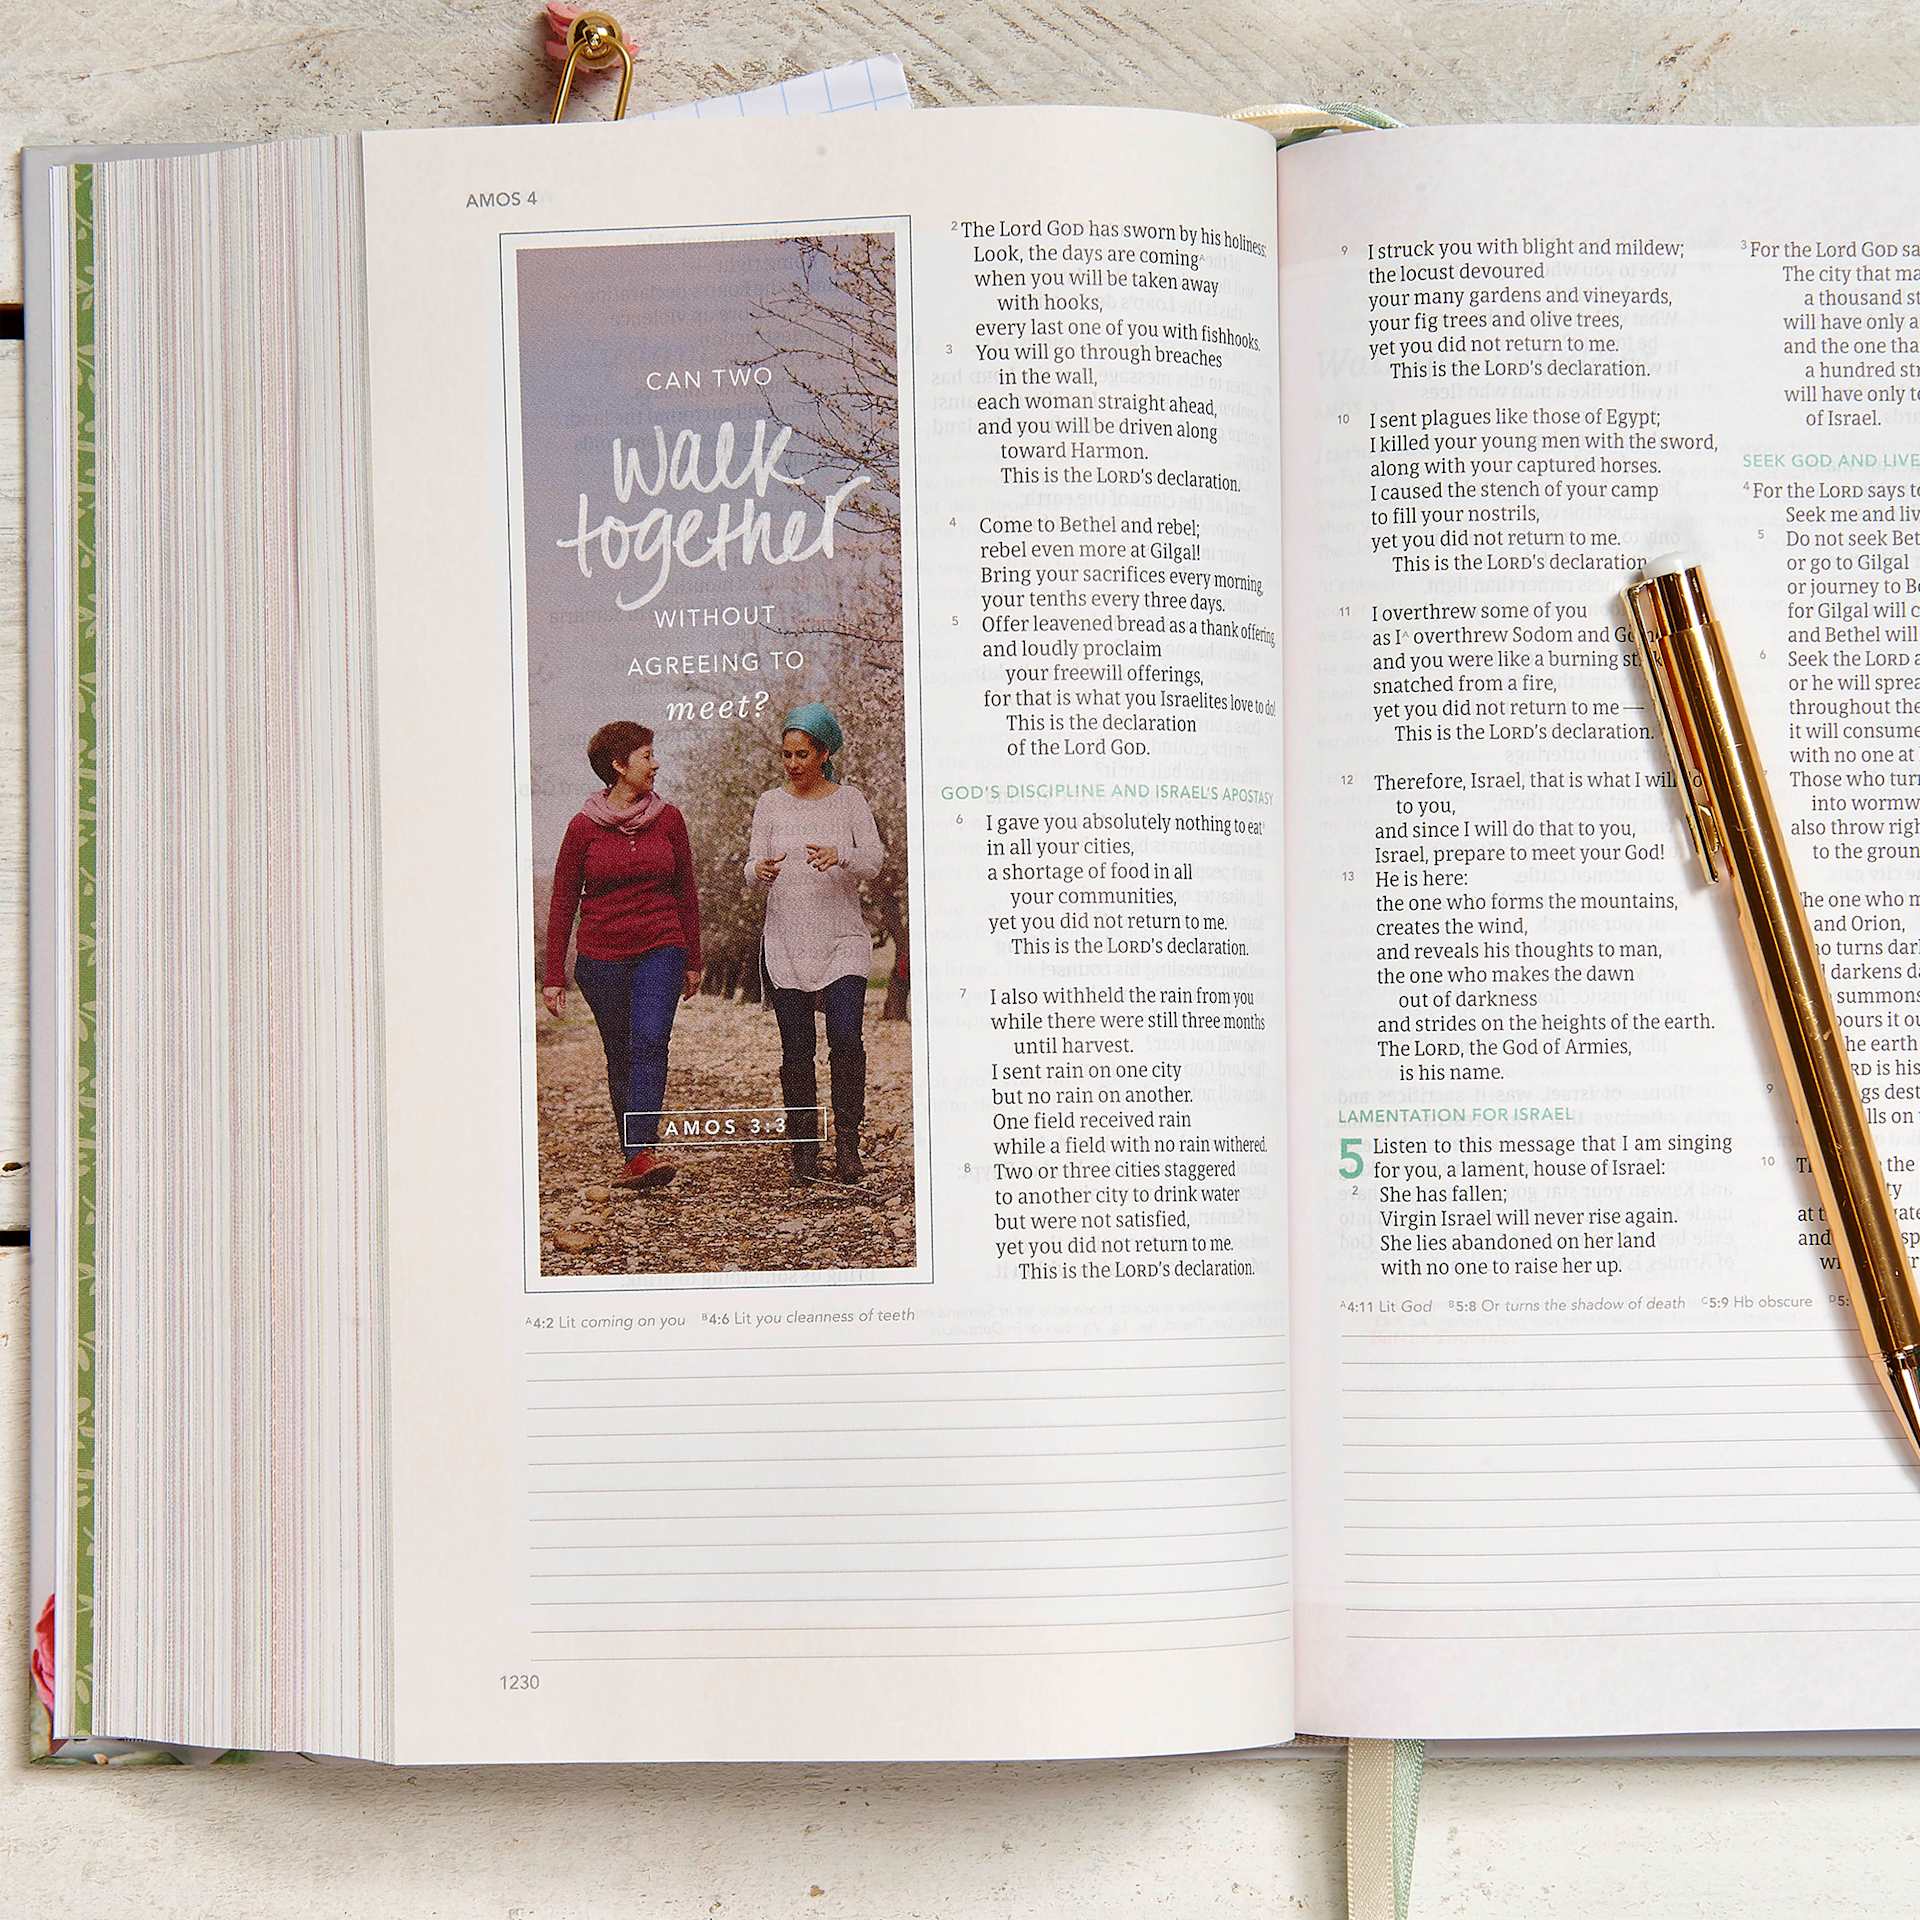 AMOS 4
CAN TWO
walk
together
WITHOUT
AGREEING TO
meet?
AMOS 3:3
2 The Lord GOD has sworn by his holiness:
Look, the days are coming^A
when you will be taken away
with hooks,
every last one of you with fishhooks.
3 You will go through breaches
in the wall,
each woman straight ahead,
and you will be driven along
toward Harmon.
This is the LORD's declaration.
4 Come to Bethel and rebel;
rebel even more at Gilgal!
Bring your sacrifices every morning,
your tenths every three days.
5 Offer leavened bread as a thank offering,
and loudly proclaim
your freewill offerings,
for that is what you Israelites love to do!
This is the declaration
of the Lord GOD.
GOD'S DISCIPLINE AND ISRAEL'S APOSTASY
6 I gave you absolutely nothing to eat
in all your cities,
a shortage of food in all
your communities,
yet you did not return to me.
This is the LORD's declaration.
7 I also withheld the rain from you
while there were still three months
until harvest.
I sent rain on one city
but no rain on another.
One field received rain
while a field with no rain withered.
8 Two or three cities staggered
to another city to drink water
but were not satisfied,
yet you did not return to me.
This is the LORD's declaration.
A4:2 Lit coming on you B4:6 Lit you cleanness of teeth
1230
9 I struck you with blight and mildew;
the locust devoured
your many gardens and vineyards,
your fig trees and olive trees,
yet you did not return to me.
This is the LORD's declaration.
10 I sent plagues like those of Egypt;
I killed your young men with the sword,
along with your captured horses.
I caused the stench of your camp
to fill your nostrils,
yet you did not return to me.
This is the LORD's declaration
11 I overthrew some of you
as I^A overthrew Sodom and
and you were like a burning
snatched from a fire,
yet you did not return to me —
This is the LORD's declaration.
12 Therefore, Israel, that is what I will do
to you,
and since I will do that to you,
Israel, prepare to meet your God!
13 He is here:
the one who forms the mountains,
creates the wind,
and reveals his thoughts to man,
the one who makes the dawn
out of darkness
and strides on the heights of the earth.
The LORD, the God of Armies,
is his name.
LAMENTATION FOR ISRAEL
5 Listen to this message that I am singing
for you, a lament, house of Israel:
2 She has fallen;
Virgin Israel will never rise again.
She lies abandoned on her land
with no one to raise her up.
A4:11 Lit God B5:8 Or turns the shadow of death C5:9 Hb obscure D5:
3 For the Lord GOD
The city that
a thousand
will have only a
and the one
a hundred
will have only
of Israel.
SEEK GOD AND LIVE
4 For the LORD says
Seek me and
5 Do not seek
or go to Gilgal
or journey to
for Gilgal will
and Bethel will
6 Seek the LORD
or he will
throughout the
it will consume
with no one at
Those who
into
also throw
to the
one who
and Orion,
turns
darkens
summons
the earth
is his
9
on
10
the
at
and